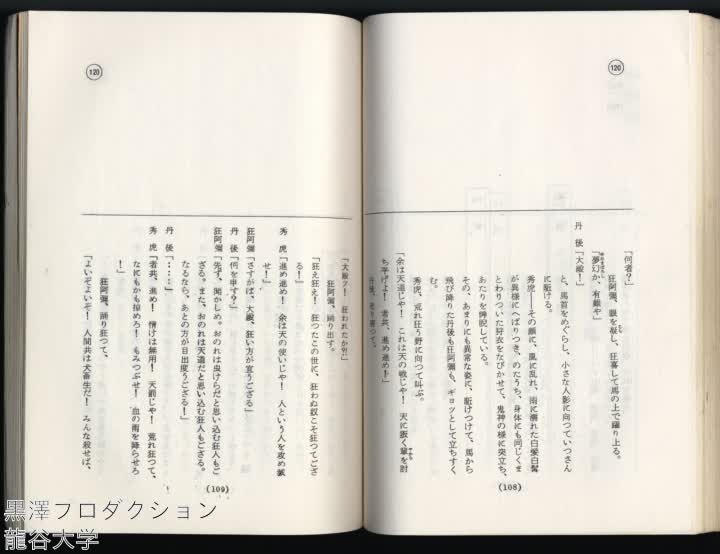 120
「何者?」
狂阿彌、眼を凝し、狂喜して馬の上で躍り上る。
「夢幻か、有難や」
丹後「大殿!」
と、馬首をめぐらし、小さな人影に向つていつさん
に駈ける。
秀虎——その顔に、風に乱れ、雨に濡れた白髪白髯
が異様にへばりつき、のたうち、身体にも同じくま
とわりついた狩衣をなびかせて、鬼神の様に突立ち、
あたりを睥睨している。
その、あまりにも異常な姿に、駈けつけて、馬から
飛び降りた丹後も狂阿彌も、ギョッとして立ちすく
む。
秀虎、荒れ狂う野に向つて叫ぶ。
「余は天道じや! これは天の戦じや! 天に叛く輩を討
ち平げよ! 者共、進め進め!」
丹後、走り寄つて、
(108)
120
「大殿ッ! 狂われたか?!」
狂阿彌、踊り出す。
「狂え狂え! 狂つたこの世に、狂わぬ奴こそ狂つてござ
る!」
秀虎「進め進め! 余は天の使いじや! 人という人を攻め滅
せ!」
狂阿彌「さすがは、大殿、狂い方が宜うござる」
丹後「何を申す?」
狂阿彌「先ず、聞かしめ。おのれは虫けらだと思い込む狂人もご
ざる。また、おのれは天道だと思い込む狂人もござる。
なるなら、あとの方が目出度うござる!」
丹後「……」
秀虎「者共、進め! 情けは無用! 天罰じや! 荒れ狂つて、
なにもかも掠めろ! もみつぶせ! 血の雨を降らせろ
!」
狂阿彌、踊り狂つて、
「よいぞよいぞ! 人間共は犬畜生だ! みんな殺せば、
(109)
黒澤プロダクション
龍谷大学